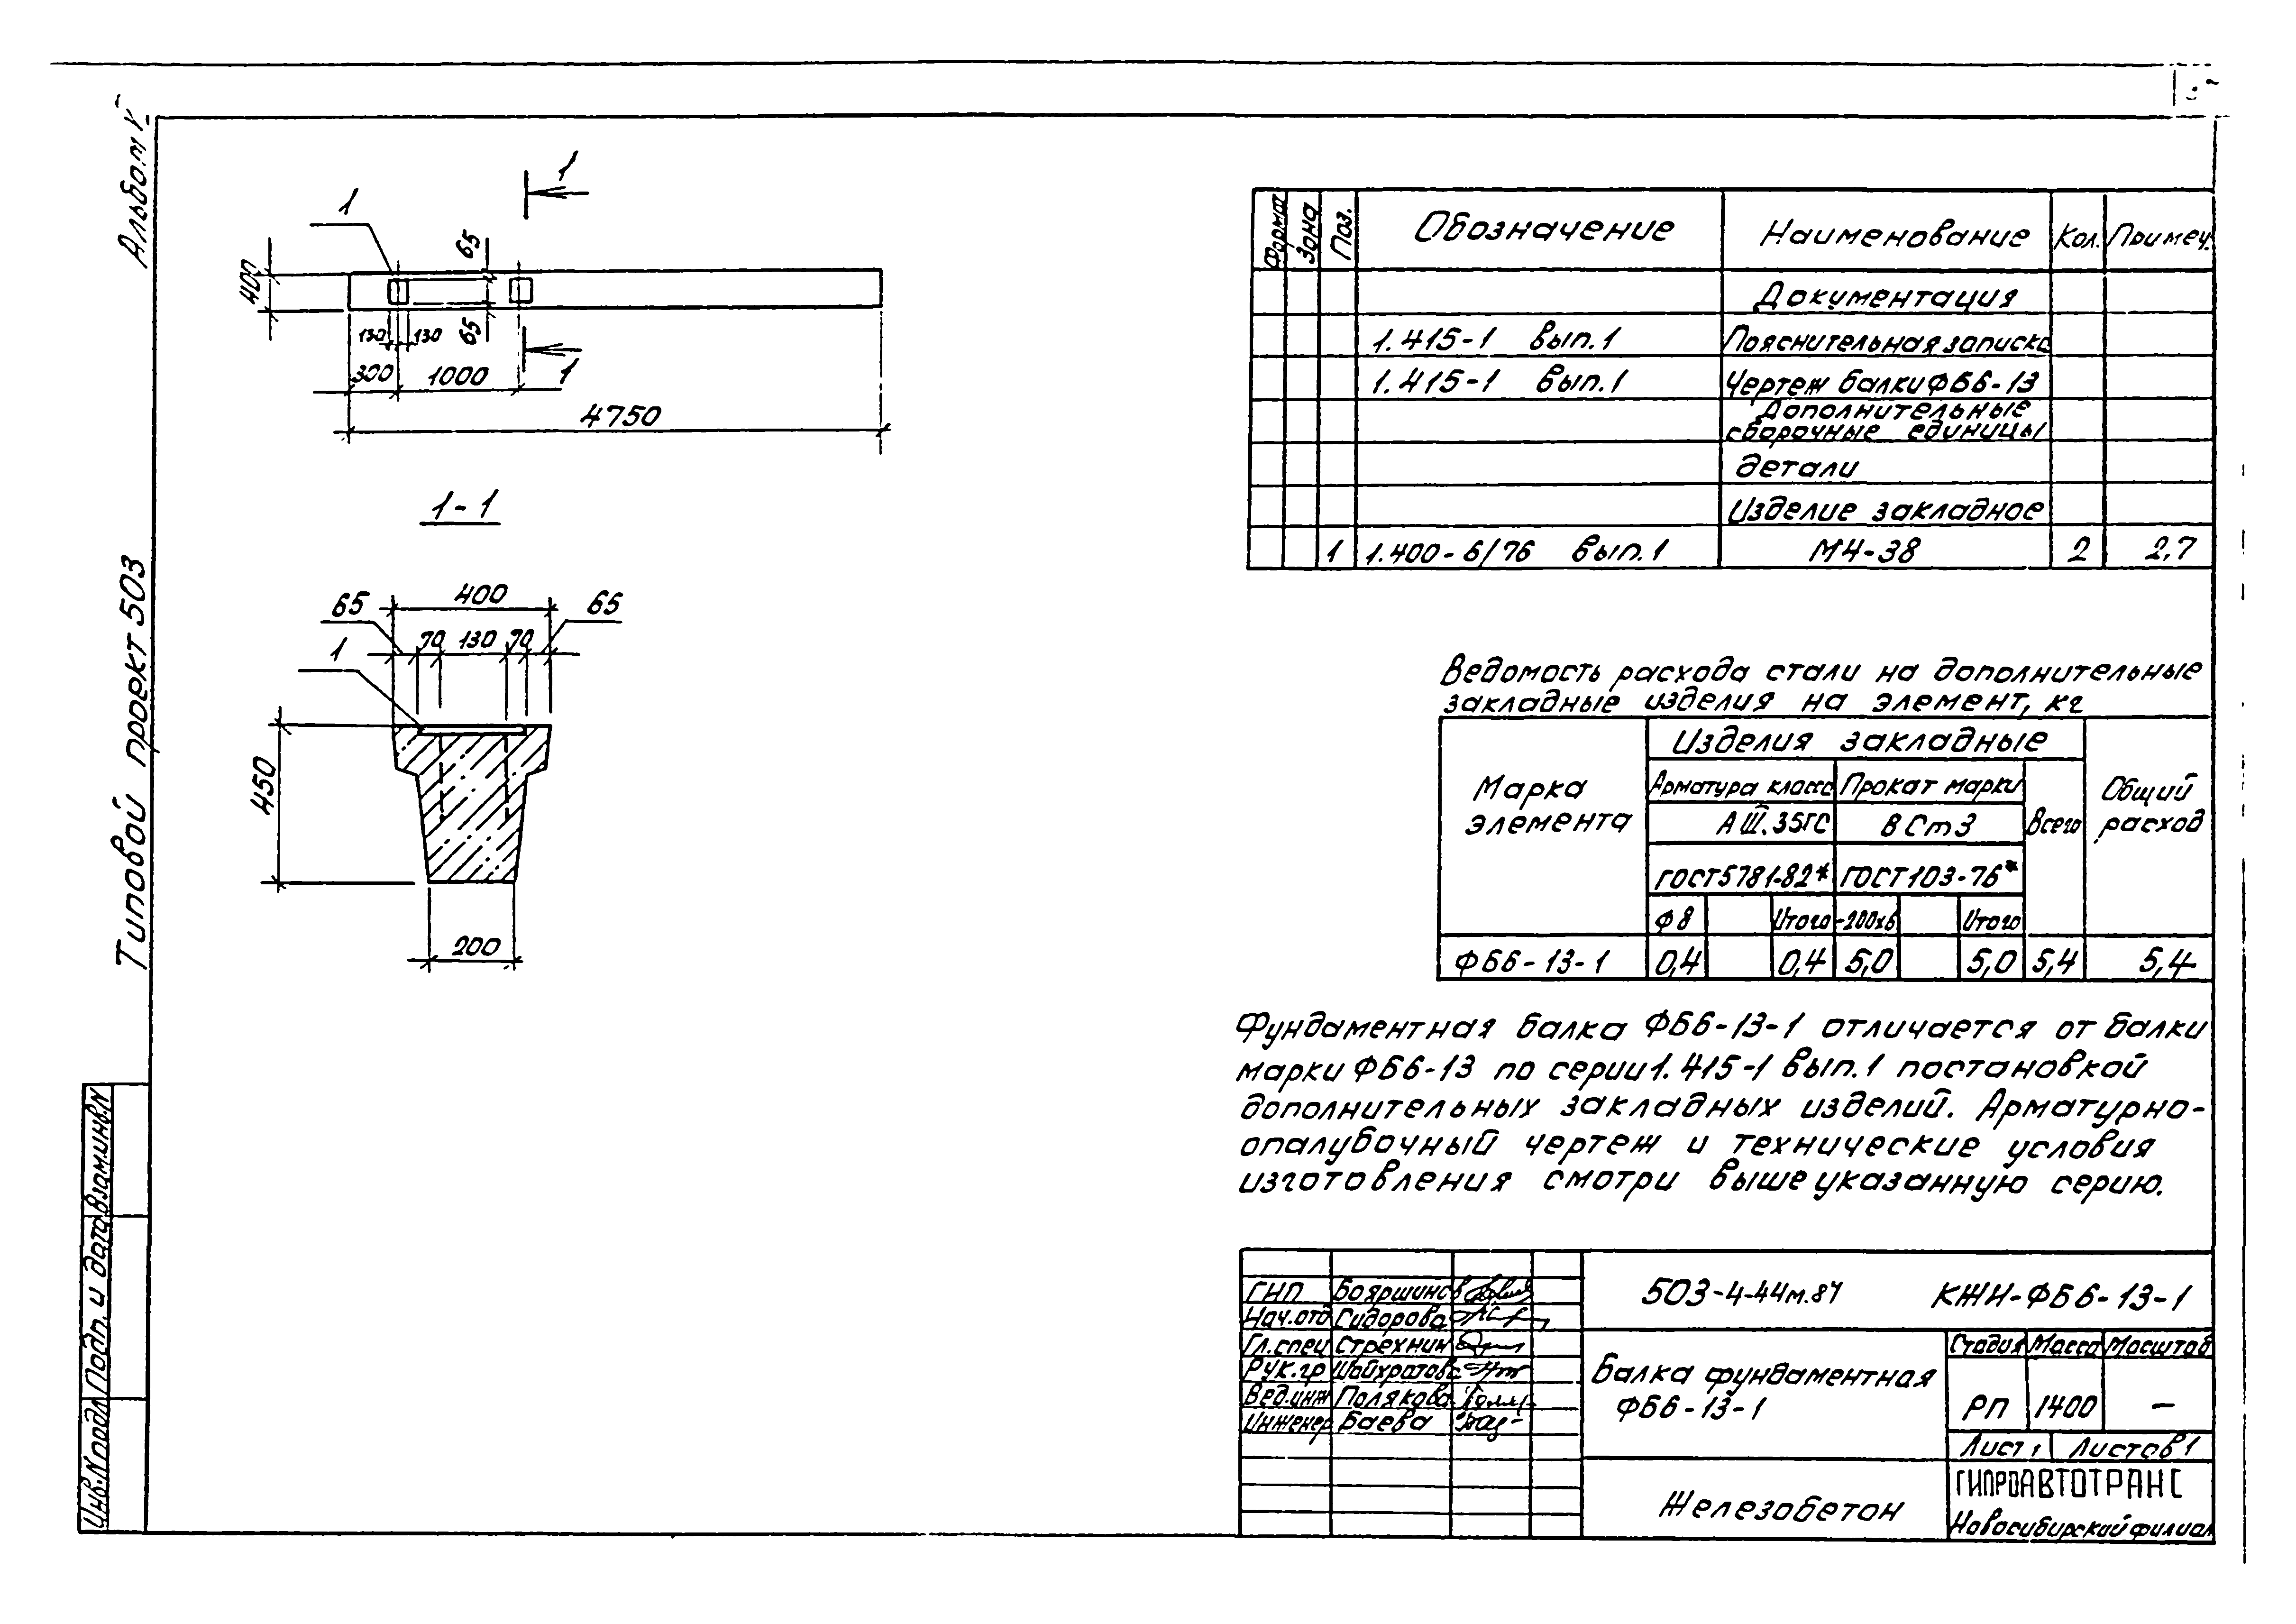 Альбом V
Типовой проект 503
Взам.инв.N
Подп. и дата
Инв.N подл
1
1
400
65
65
130
130
300
1000
1
4750
1-1
65
400
65
70
130
70
1
450
200
Формат
Зона
Поз.
Обозначение
Наименование
Кол.
Примеч.
Документация
1.415-1 вып.1
Пояснительная записка
1.415-1 вып.1
Чертеж балки ФБ6-13
Дополнительные
сборочные единицы
детали
Изделие закладное
1
1.400-6/76 вып.1
М4-38
2
2,7
Ведомость расхода стали на дополнительные
закладные изделия на элемент, кг
Марка
элемента
Изделия закладные
Общий
расход
Арматура класса
Прокат марки
Всего
А III.35ГС
ВСт3
ГОСТ5781-82*
ГОСТ103-76*
Ф8
Итого
-200х6
Итого
ФБ6-13-1
0,4
0,4
5,0
5,0
5,4
5,4
Фундаментная балка ФБ6-13-1 отличается от балки
марки ФБ6-13 по серии 1.415-1 вып.1 постановкой
дополнительных закладных изделий. Арматурно-
опалубочный чертеж и технические условия
изготовления смотри вышеуказанную серию.
ГИП
Бояршинов
Нач.отд
Сидорова
Гл.спец
Стрехнин
Рук.гр
Шайхратова
Вед.инж
Полякова
Инженер
Баева
503-4-44м.87
КЖИ-ФБ6-13-1
Балка фундаментная
ФБ6-13-1
Стадия
Масса
Масштаб
РП
1400
—
Лист 1
Листов 1
Железобетон
ГИПРОАВТОТРАНС
Новосибирский филиал